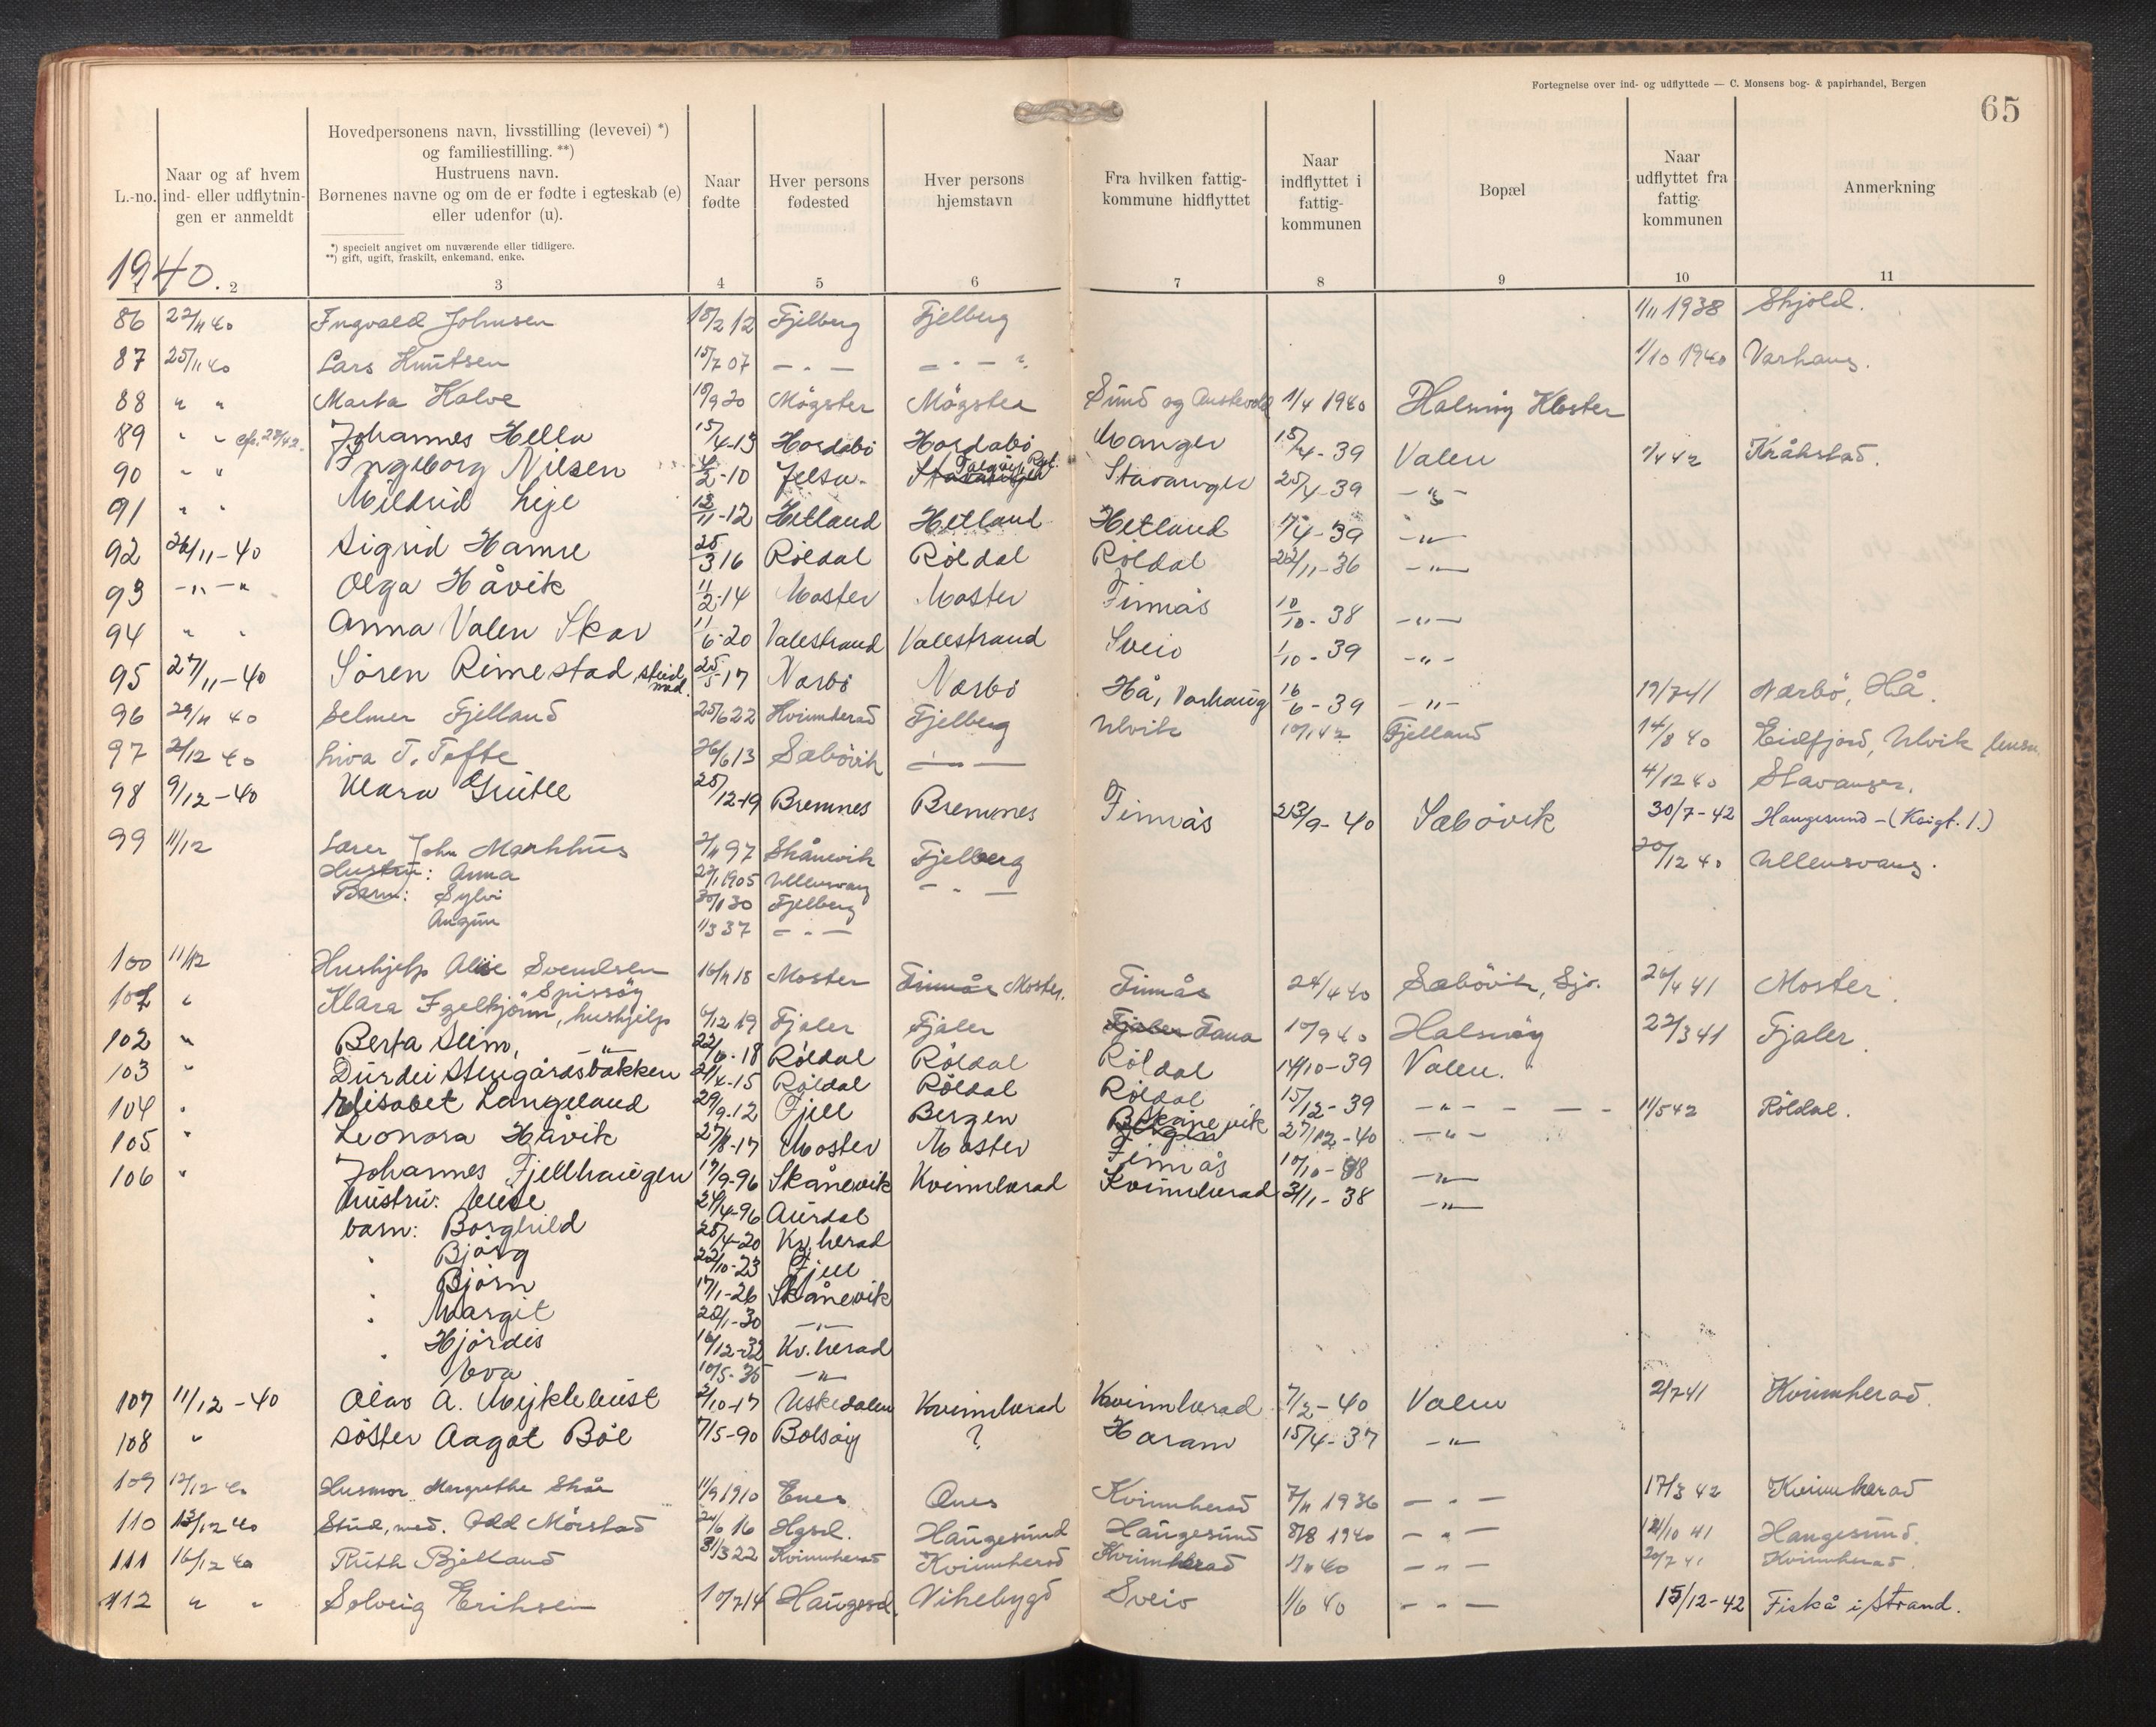 Fortegnelse over ind- og udflyttede — C. Monsens bog- & papirhandel, Bergen
65
L.-no.
Naar og af hvem ind- eller udflytnin-gen er anmeldt
Hovedpersonens navn, livsstilling (levevei) *)
og familiestilling. **)
Hustruens navn.
Børnenes navne og om de er fødte i egteskab (e)
eller udenfor (u).
*) specielt angivet om nuværende eller tidligere.
**) gift, ugift, fraskilt, enkemand, enke.
Naar fødte
Hver persons fødested
Hver persons hjemstavn
Fra hvilken fattig-kommune hidflyttet
Naar indflyttet i fattig-kommunen
Bopæl
Naar udflyttet fra fattig-kommunen
Anmerkning
1940.
1 2 3 4 5 6 7 8 9 10 11
86 22/11 40 Ingvald Johnsen 18/2 12 Fjelberg Fjelberg 1/11 1938 Skjold.
87 25/11 40 Lars Knutsen 15/7 07 — " — — " — 1/10 1940 Varhaug.
88 " " Marta Kalve 18/9 20 Mögster Mögster Sund og Austevold 1/4 1940 Halsnöy Kloster
89 " " Johannes Hella 15/4-13 Hordabö Hordabö Manger 15/4-39 Valen 1/4 42 Kråkstad.
90 " " Ingeborg Nilsen 4/2-10 Jelsa. Stavanger Stavanger 25/4-39 — " —
91 " " Mildrid Lije 12/11-12 Hetland Hetland Hetland 1/4-39 — " —
92 26/11-40 Sigrid Hamre 25/3 16 Röldal Röldal Röldal 22/11-36 — " —
93 — " — " Olga Håvik 11/2-14 Moster Moster Finnås 10/10-38 — " —
94 " " Anna Valen Skar 11/6-20 Valestrand Valestrand Sveio 1/10-39 — " —
95 27/11-40 Sören Rimestad stud. med. 25/5-17 Nærbö Nærbö Hå, Varhaug 16/6-39 — " — 19/7 41 Nærbö, Hå.
96 29/11 40 Selmer Fjelland 25/6 22 Kvinnherad Fjelberg Ulvik 10/1 42 Fjelland 14/8 40 Eidfjord, Ulvik
97 2/12 40 Liva T. Tofte 26/6 13 Sæbövik — " — 4/12 40 Stavanger.
98 9/12-40 Klara Grutle 25/12-19 Bremnes Bremnes Finnås 23/9-40 Sæbövik 30/7-42 Haugesund
99 11/12 Lærer John Markhus 2/11 97 Skånevik Fjelberg 20/12 40 Ullensvang.
Hustru: Anna 22/1 1905 Ullensvang — " —
Barn: Sylvi 30/1 30 Fjelberg
Augun 1/3 37 — " —
100 11/12 Hushjelp Alise Svendsen Spissöy 16/11 18 Moster Finnås Moster. Finnås 24/4 40 Sæbövik, Sjo. 26/4 41 Moster.
101 " Klara Igelkjönn, hushjelp 6/12 19 Fjaler Fjaler Fjaler Fana 10/9 40 Halsnöy 22/3 41 Fjaler.
102 " Berta Seim, " 22/6-18 Röldal Röldal Röldal 14/10-39 Valen.
103 " Durdei Stengårdsbakken 21/4-15 Röldal Röldal Röldal 15/12-39 — " — 11/5 42 Röldal.
104 " Elisabet Langeland 29/9-12 Fjell Bergen Bergen Skånevik 27/12-40 — " —
105 " Leonora Håvik 27/8-17 Moster Moster Finnås 10/10-38 — " —
106 " Johannes Fjellhaugen 17/9-96 Skånevik Kvinnherad Kvinnherad 3/11-38 — " —
hustru: 24/4-96 Aurdal
barn: Borghild 25/4-20 Kv.herad
" Björg 22/10-23 Fjell
" Björn 17/1-26 Skånevik
" Margit 28/1-30 — " —
" Hjördis 16/12-32 Kv.herad
Eva 10/5-35 — " —
107 11/12-40 Olav A. Myklebust 2/10-17 Uskedalen Kvinnherad Kvinnherad 7/2-40 Valen 2/7 41 Kvinnherad.
108 " söster Aagot Böe 7/5-90 Bolsöy ? Haram 15/4-37 — " —
109 12/12 40 Husmor Margrethe Skår 11/9 1910 Enes Ænes Kvinnherad 7/11 1936 — " — 17/3 42 Kvinnherad
110 13/12 40 Stud. med. Odd Mörstad 24/6 16 Hgsd. Haugesund Haugesund 8/8 1940 — " — 14/10 41 Haugesund.
111 16/12 40 Ruth Bjelland 31/3 22 Kvinnherad Kvinnherad Kvinnherad 1/11 40 — " — 20/7 41 Kvinnherad.
112 " " Solveig Eriksen 10/7 14 Haugesd. Vikebygd Sveio 1/6 40 — " — 15/12-42 Fiskå i Strand.